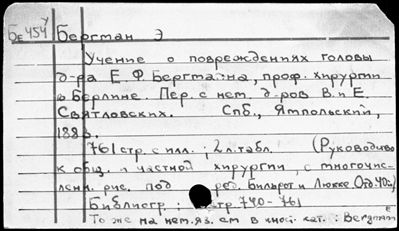 Бе 454у Бергман Э
Учение о повреждениях головы
д-ра Е. Ф. Бергмана, проф. хирургии
в Берлине. Пер. с нем. д-ров В. и Е.
Святловских. Спб., Ямпольский,
1883.
761 стр. с илл.; 2 л. табл. (Руководиво
к общ. и частной хирургии, с многочис-
ленн. рис. под ред. Бильрот и Люкке Отд. 40й)
Библиогр; стр. 740-761
То же на нем. яз. см в иной. кат.: Bergmann E